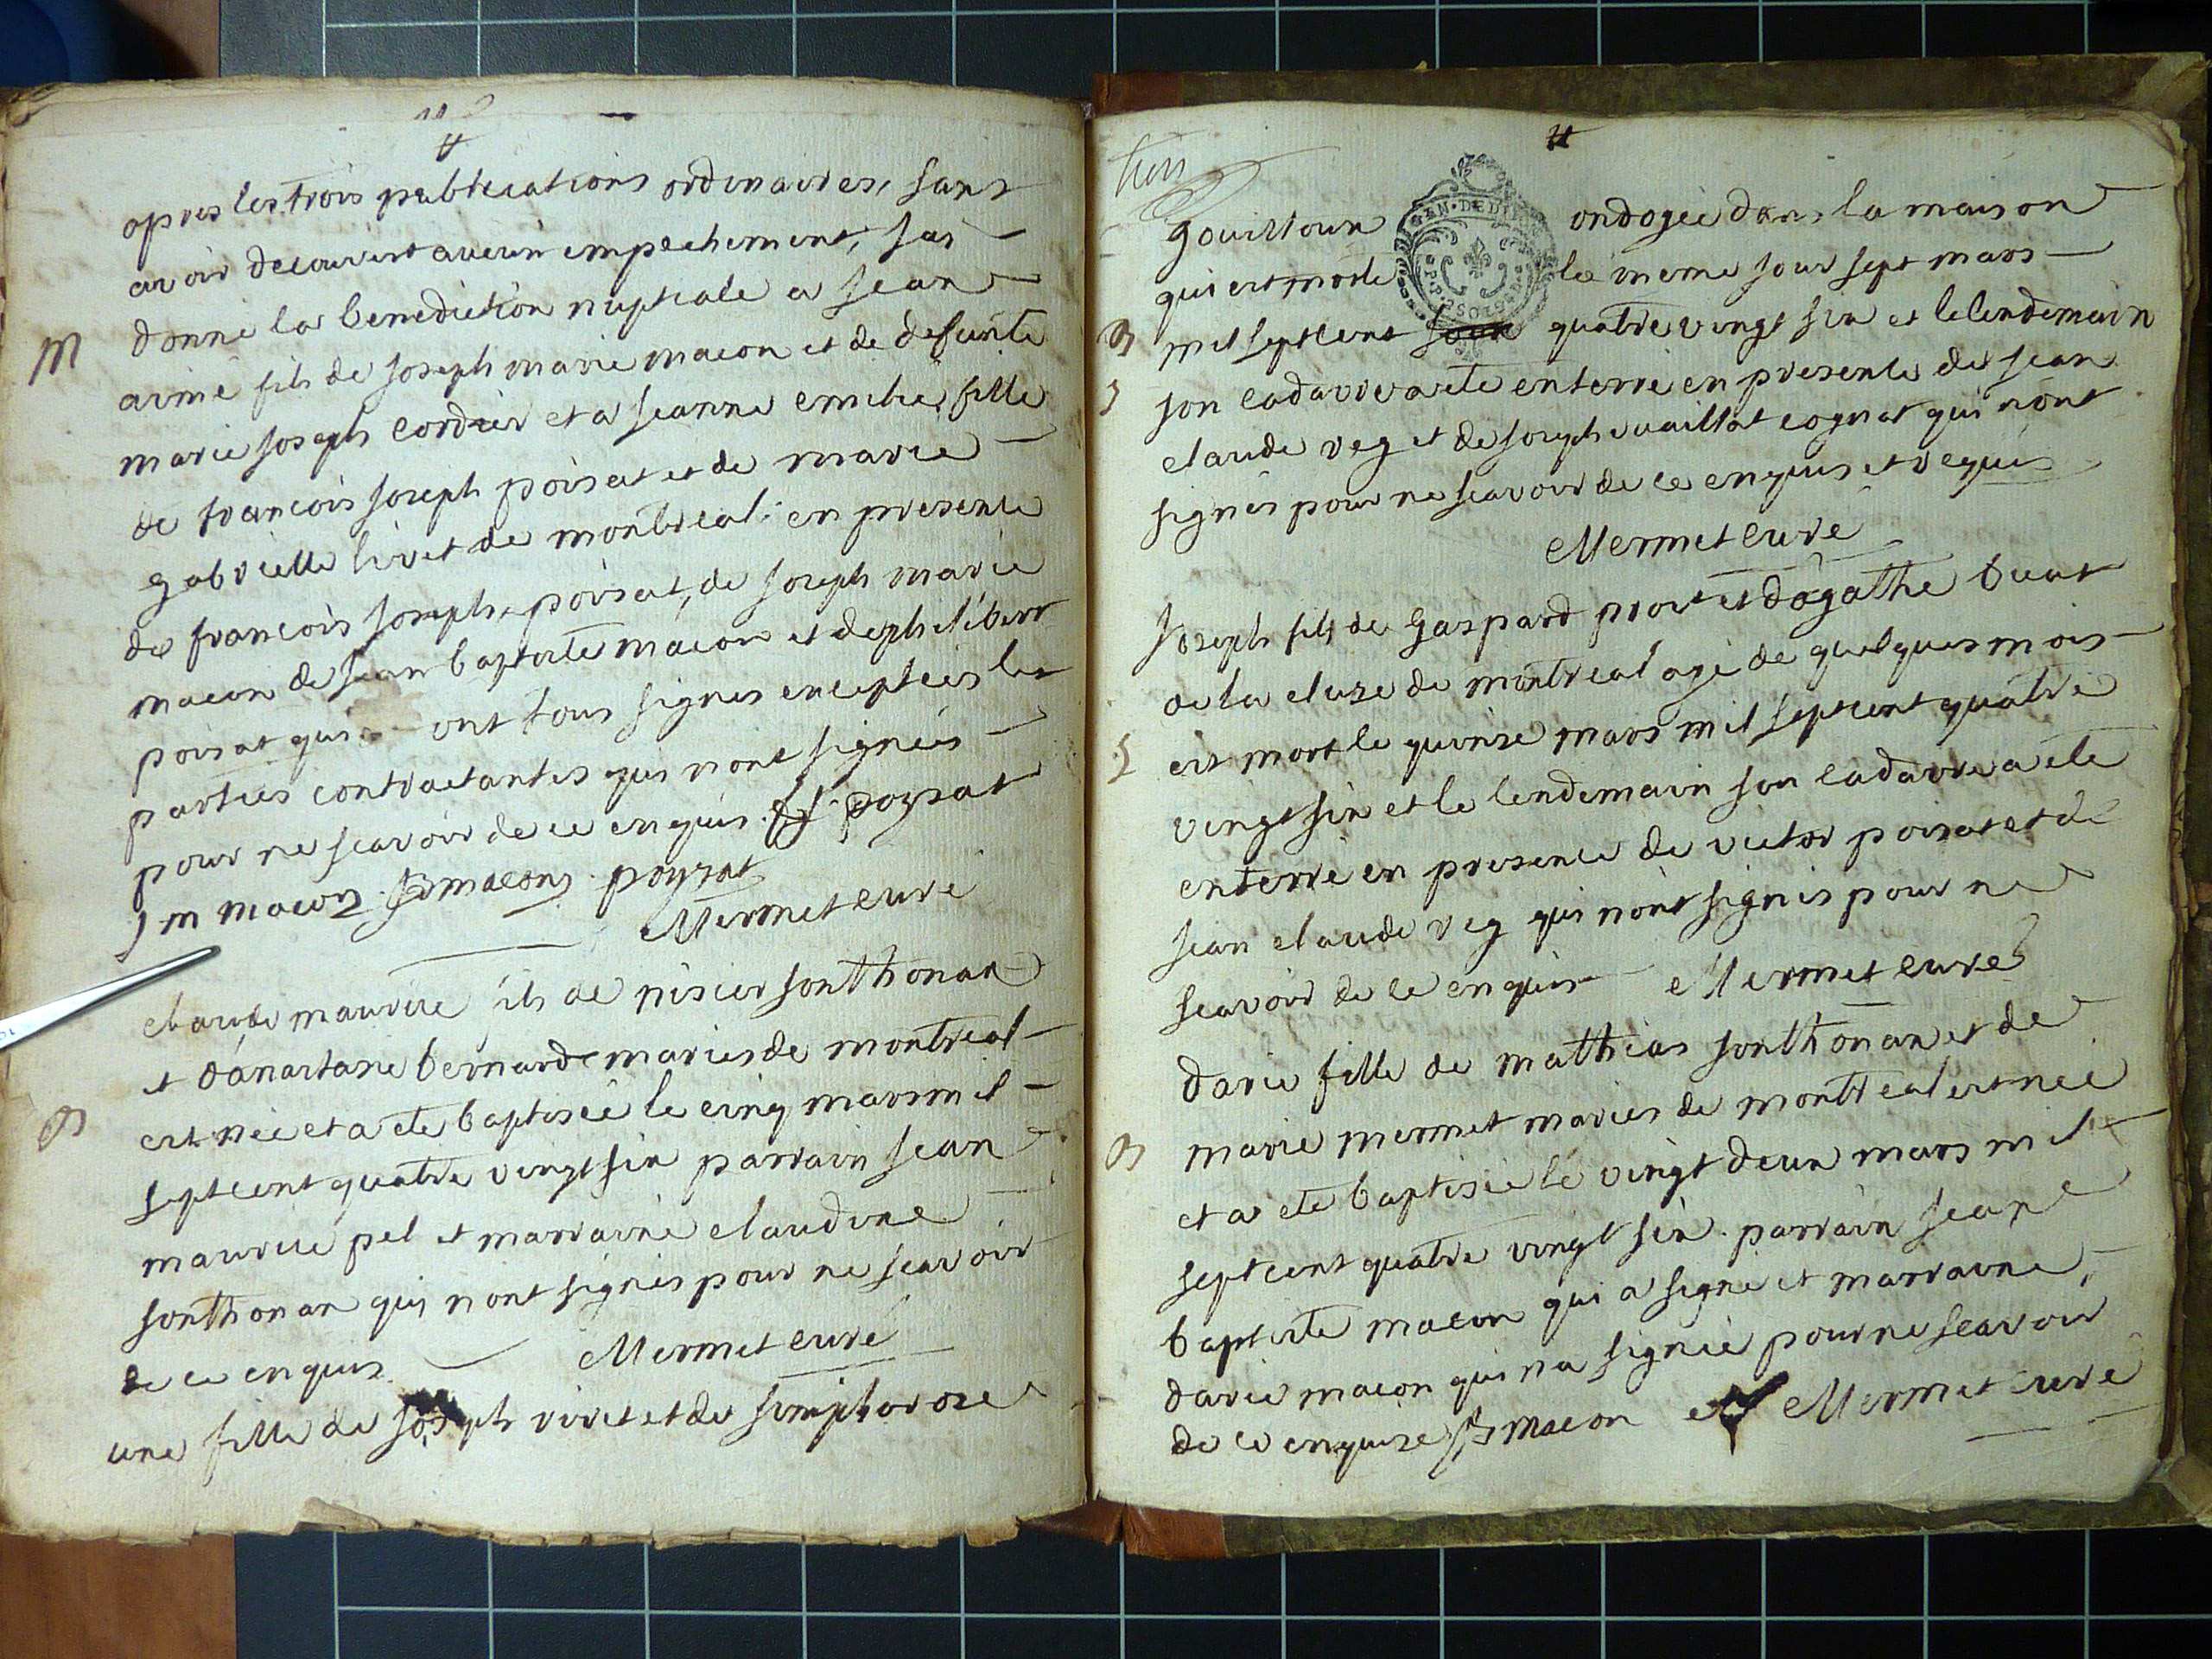 apres les trois publications ordinaires, sans
avoir decouvert aucun impechement, jai
donné la benediction nuptiale a jean
M
aimé fils de joseph marie macon et de defunte
marie joseph cordier et a jeanne emelie fille
de francois joseph poisat et de marie
gabrielle livet de montreal en presence
de francois joseph poisat, de joseph marie
macon de jean baptiste macon et de philibert
poisat qui ont tous signes exceptées les
parties contractantes qui nont signées
pour ne scavoir de ce enquis. poysat
J m macon JB macon poyzat
Mermet curé
claude maurice fils de nisier sonthonax
et d'anastasie bernard mariés de montreal
B
est née et a ete baptisée le cinq mars mil
sept cent quatre vingt six parrain jean
maurice pel et marraine claudine
sonthonax qui nont signés pour ne scavoir
de ce enquis
Mermet curé
une fille de joseph vivet et de simphorose
gouilloux ondoyée dans la maison
qui est morte le meme jour sept mars
B
mil sept cent quatre vingt six et le lendemain
S
son cadavre a ete enterré en presence de jean
claude rey et de joseph cognat qui nont
signés pour ne scavoir de ce enquis et requis
Mermet curé
Joseph fils de Gaspard prost et d'agathe buat
de la cluse de montreal agé de quelques mois
S
est mort le quinze mars mil sept cent quatre
vingt six et le lendemain son cadavre a ete
enterré en presence de victor poisat et de
jean claude rey qui nont signés pour ne
scavoir de ce enquis Mermet curé
darie fille de matthias sonthonax et de
B
marie mermet mariés de montreal est née
et a ete baptisée le vingt deux mars mil
sept cent quatre vingt six parrain jean
baptiste macon qui a signé et marraine
darie macon qui na signée pour ne scavoir
de ce enquise JB macon Mermet curé